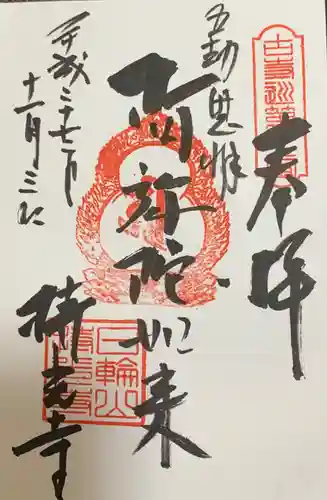 奉拝
五劫思惟
阿弥陀如来
平成二十七年
十一月三日
持光寺
古寺巡
日輪山